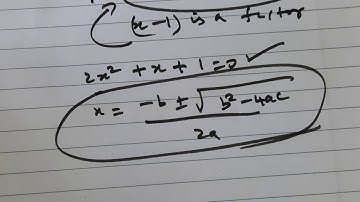 (x-1) is a factor
2x² + x + 1 = 0 ✓
x = -b ± √b² - 4ac
2a